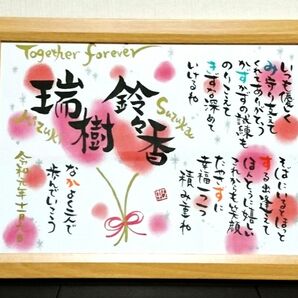 Together forever
鈴々香
Suzuka
瑞樹
Mizuki
いつも優しく
み守り支えて
くれてありがとう
かずかずの試練も
のりこえて
きずな深めて
いけるね
そばにいるとほっと
する出逢えて
ほんとうに嬉しい
これからも笑顔
たやさずに
幸福一つ一つ
積み重ね
なかよく二人で
歩んでいこう
令和元年十一月